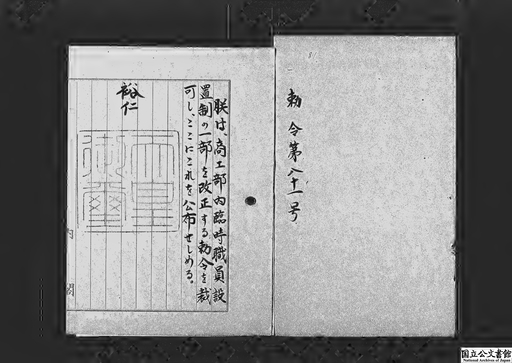 勅令第八十一号
朕は、商工部内臨時職員設
置制の一部を改正する勅令を裁
可し、ここにこれを公布せしめる。
裕仁
天皇
御璽
内閣
国立公文書館
National Archives of Japan